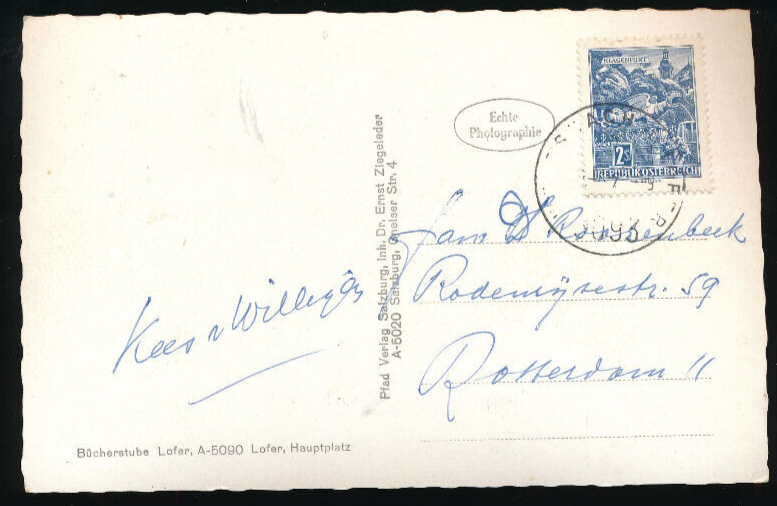 KLAGENFURT
2S
REPUBLIK ÖSTERREICH
Echte
Photographie
5093
Fam
Rodemijsestr. 59
Rotterdam 11
Kees v Willigen
Pfad Verlag Salzburg, Inh. Dr. Ernst Ziegeleder
A-5020 Salzburg, Gneiser Str. 4
Bücherstube Lofer, A-5090 Lofer, Hauptplatz